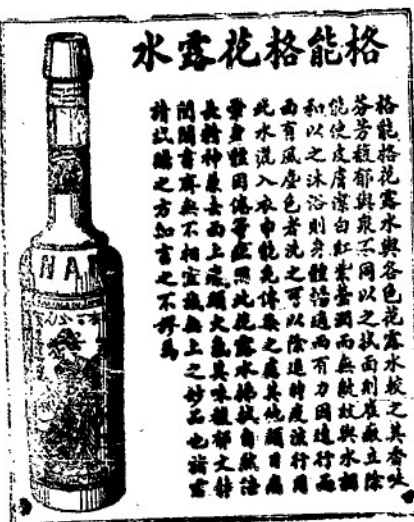 格能格花露水
格能格花露水與各色花露水較之其香味
芬芳馥郁與衆不同以之拭面則雀斑立除
能使皮膚潔白紅紫瑩潤而無皺紋與水相
和以之沐浴則身體舒適而有力因遠行而
面有風塵色者洗之可以除退時疫流行用
此水混入衣巾能免傳染之虞其他頭目痛
暈身體困倦等症照此花露水拂拭自然活
長精神兼去面上瘡癤火氣其味馥郁文雅
閨閣書齋無不相宜誠無上之妙品也諸君
請試購之方知言之不謬焉